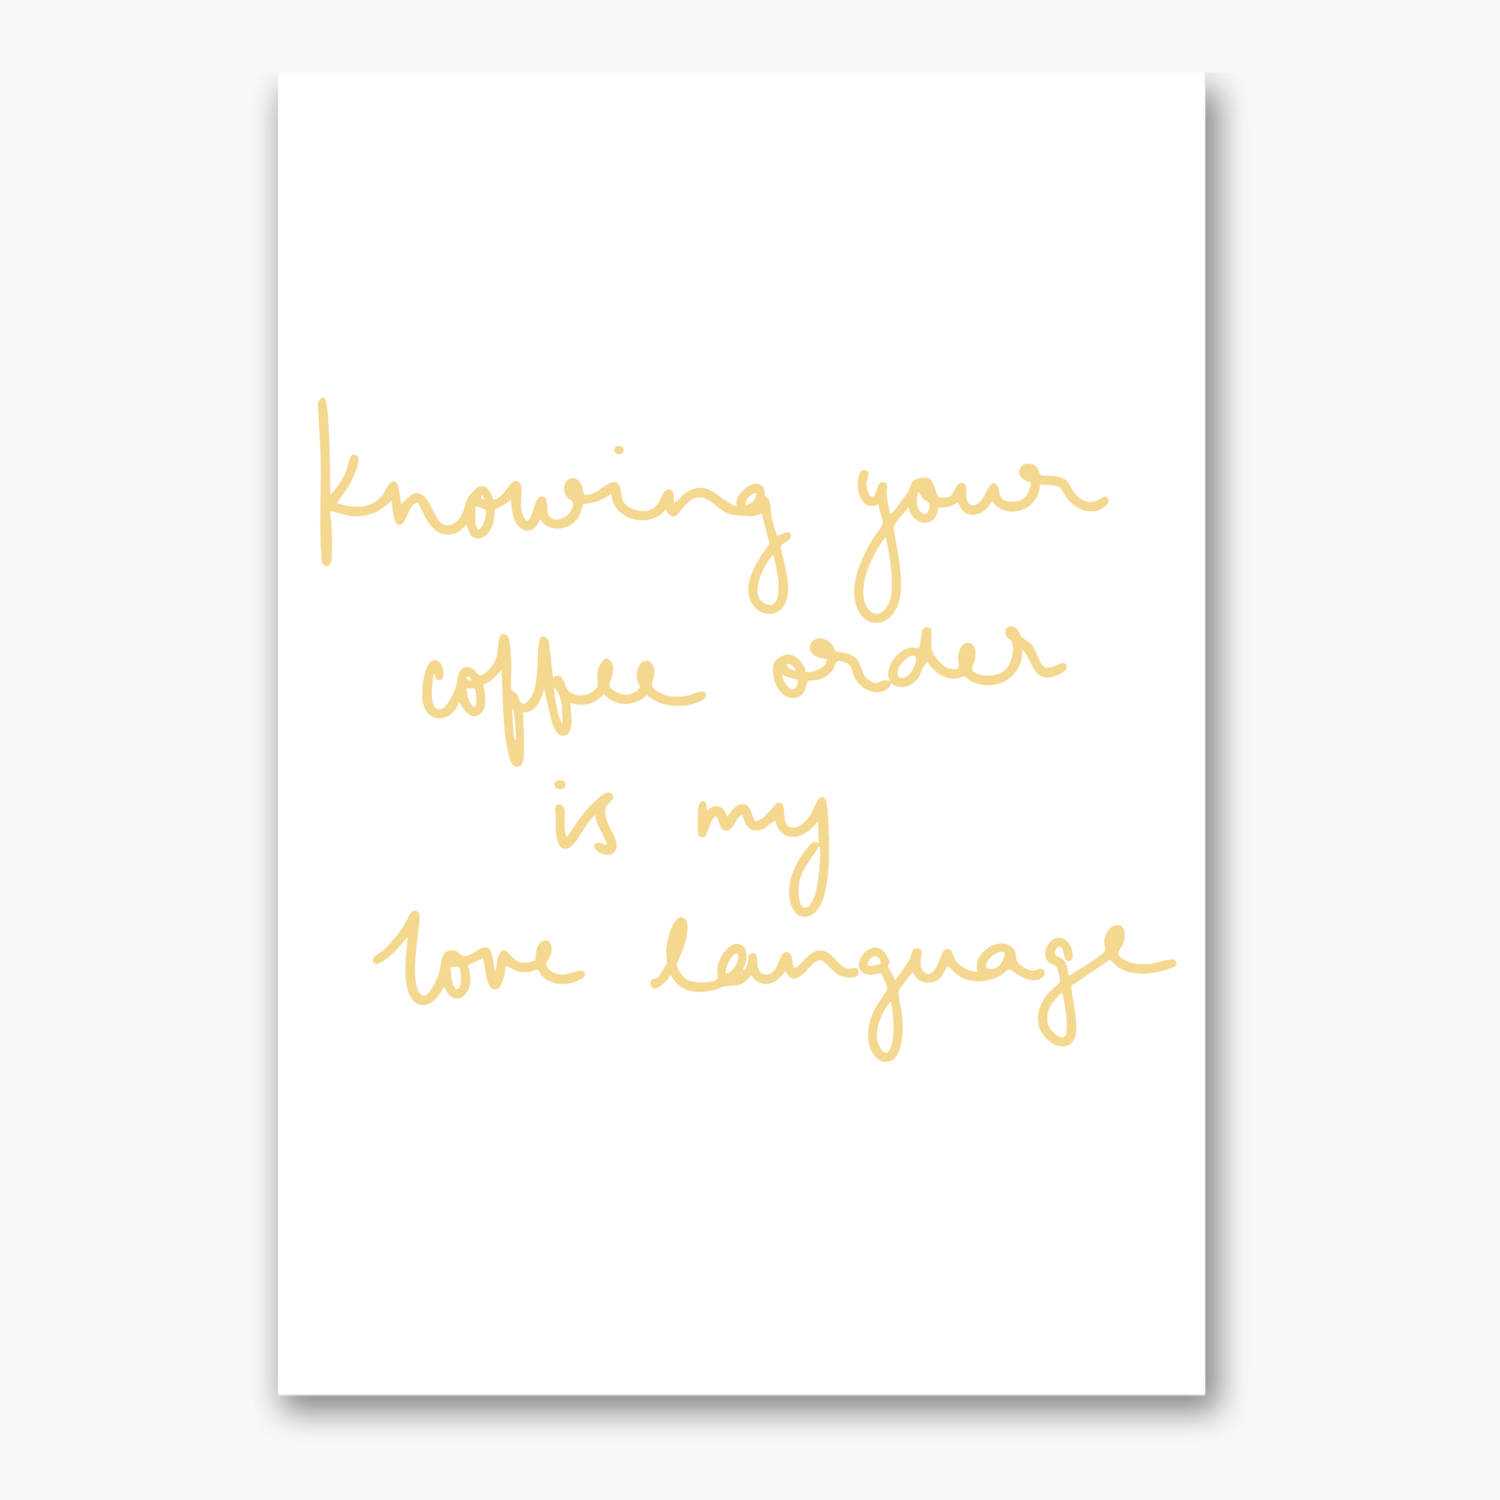 knowing your
coffee order
is my
love language